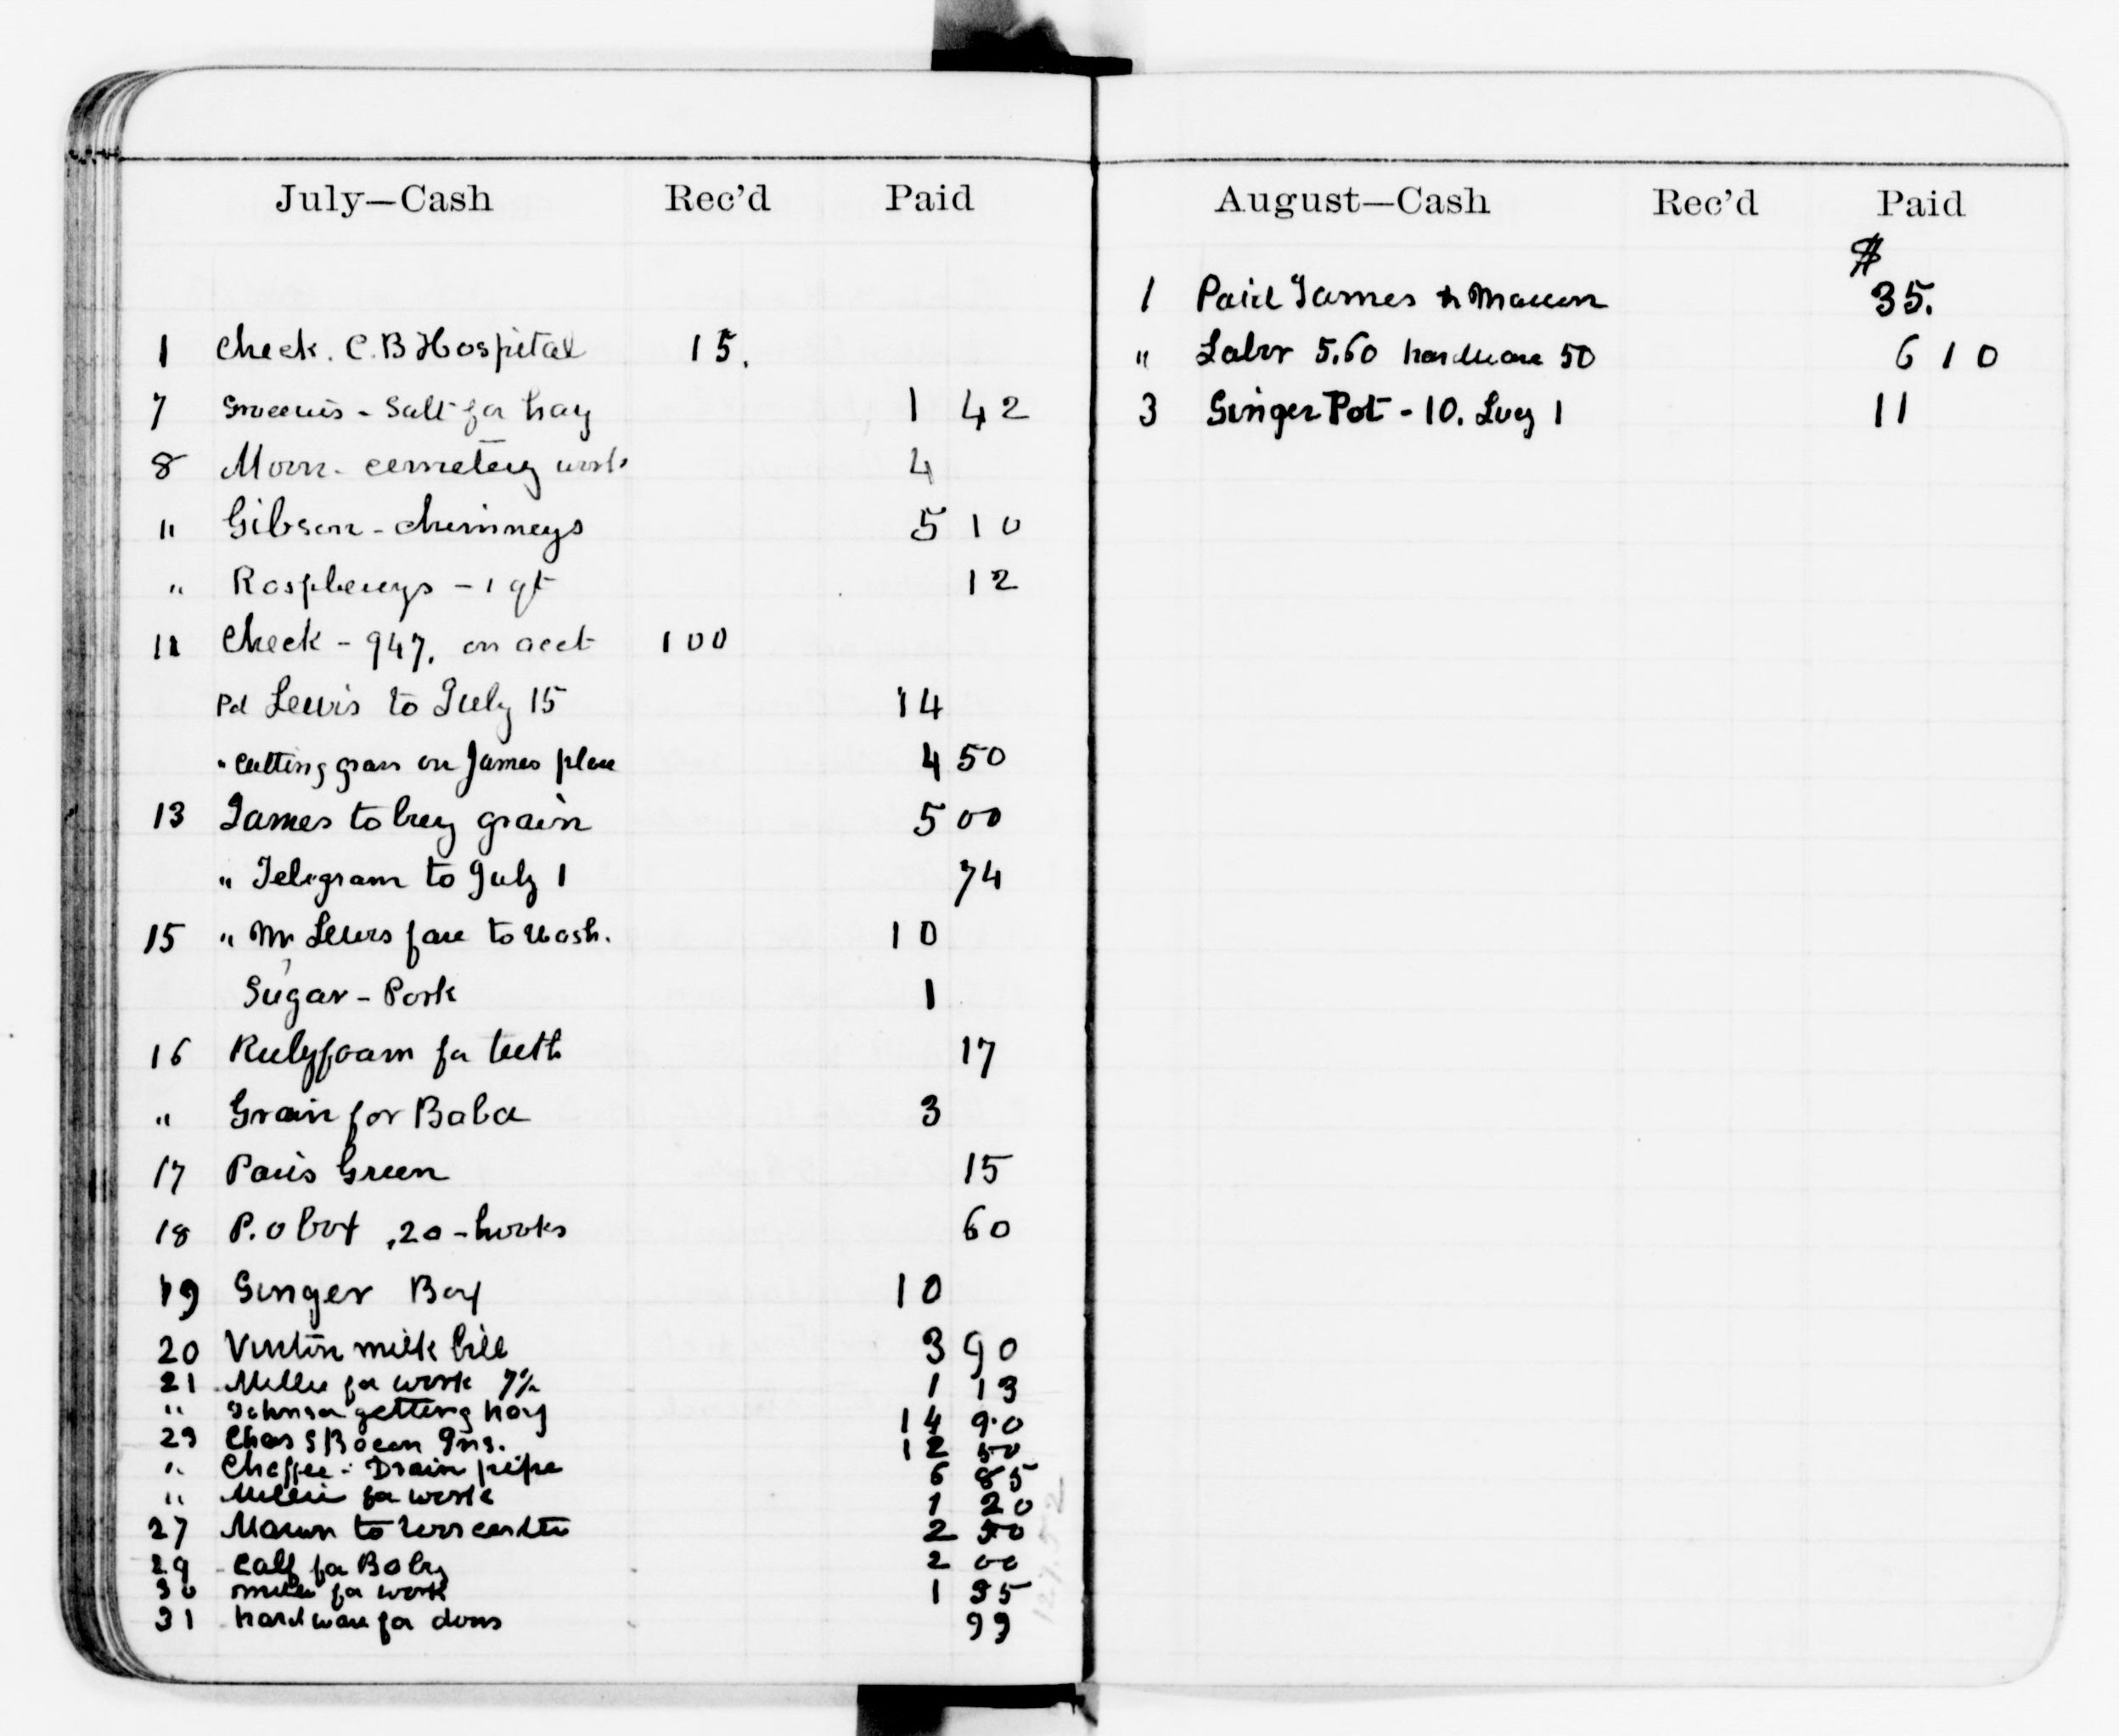 July—Cash Rec'd Paid
1 Check. C.B Hospital 15.
7 Groceries - Salt for hay 1 42
8 Moore - cemetery work 4
" Gibson - chimneys 5 10
" Raspberrys - 1 qt 12
11 Check - 947. on acct 100
Pd Lewis to July 15 14
" Cutting grass on James place 4 50
13 James to buy grain 5 00
" Telegram to July 1 74
15 " Mr Lewis fare to Wash. 10
Sugar - Pork 1
16 Rubyfoam for teeth 17
" Grain for Baba 3
17 Paris Green 15
18 P.O box .20 - hooks 60
19 Ginger Boy 10
20 Vinton milk bill 3 90
21 Millie for work 7½ 1 13
" Johnson getting hay 14 90
23 Chas S Bacon Ins. 12 50
" Chaffee - Drain pipe 6 85
" Millie for work 1 20
27 to Worcester 2 50
29 Calf for Baby 2 00
30 Millie for work 1 35
31 hardware for doors 99
127.52
August—Cash Rec'd Paid
$
1 Paid James & 35.
" Labor 5.60 hardware 50 6 10
3 Ginger Pot - 10. Lucy 1 11